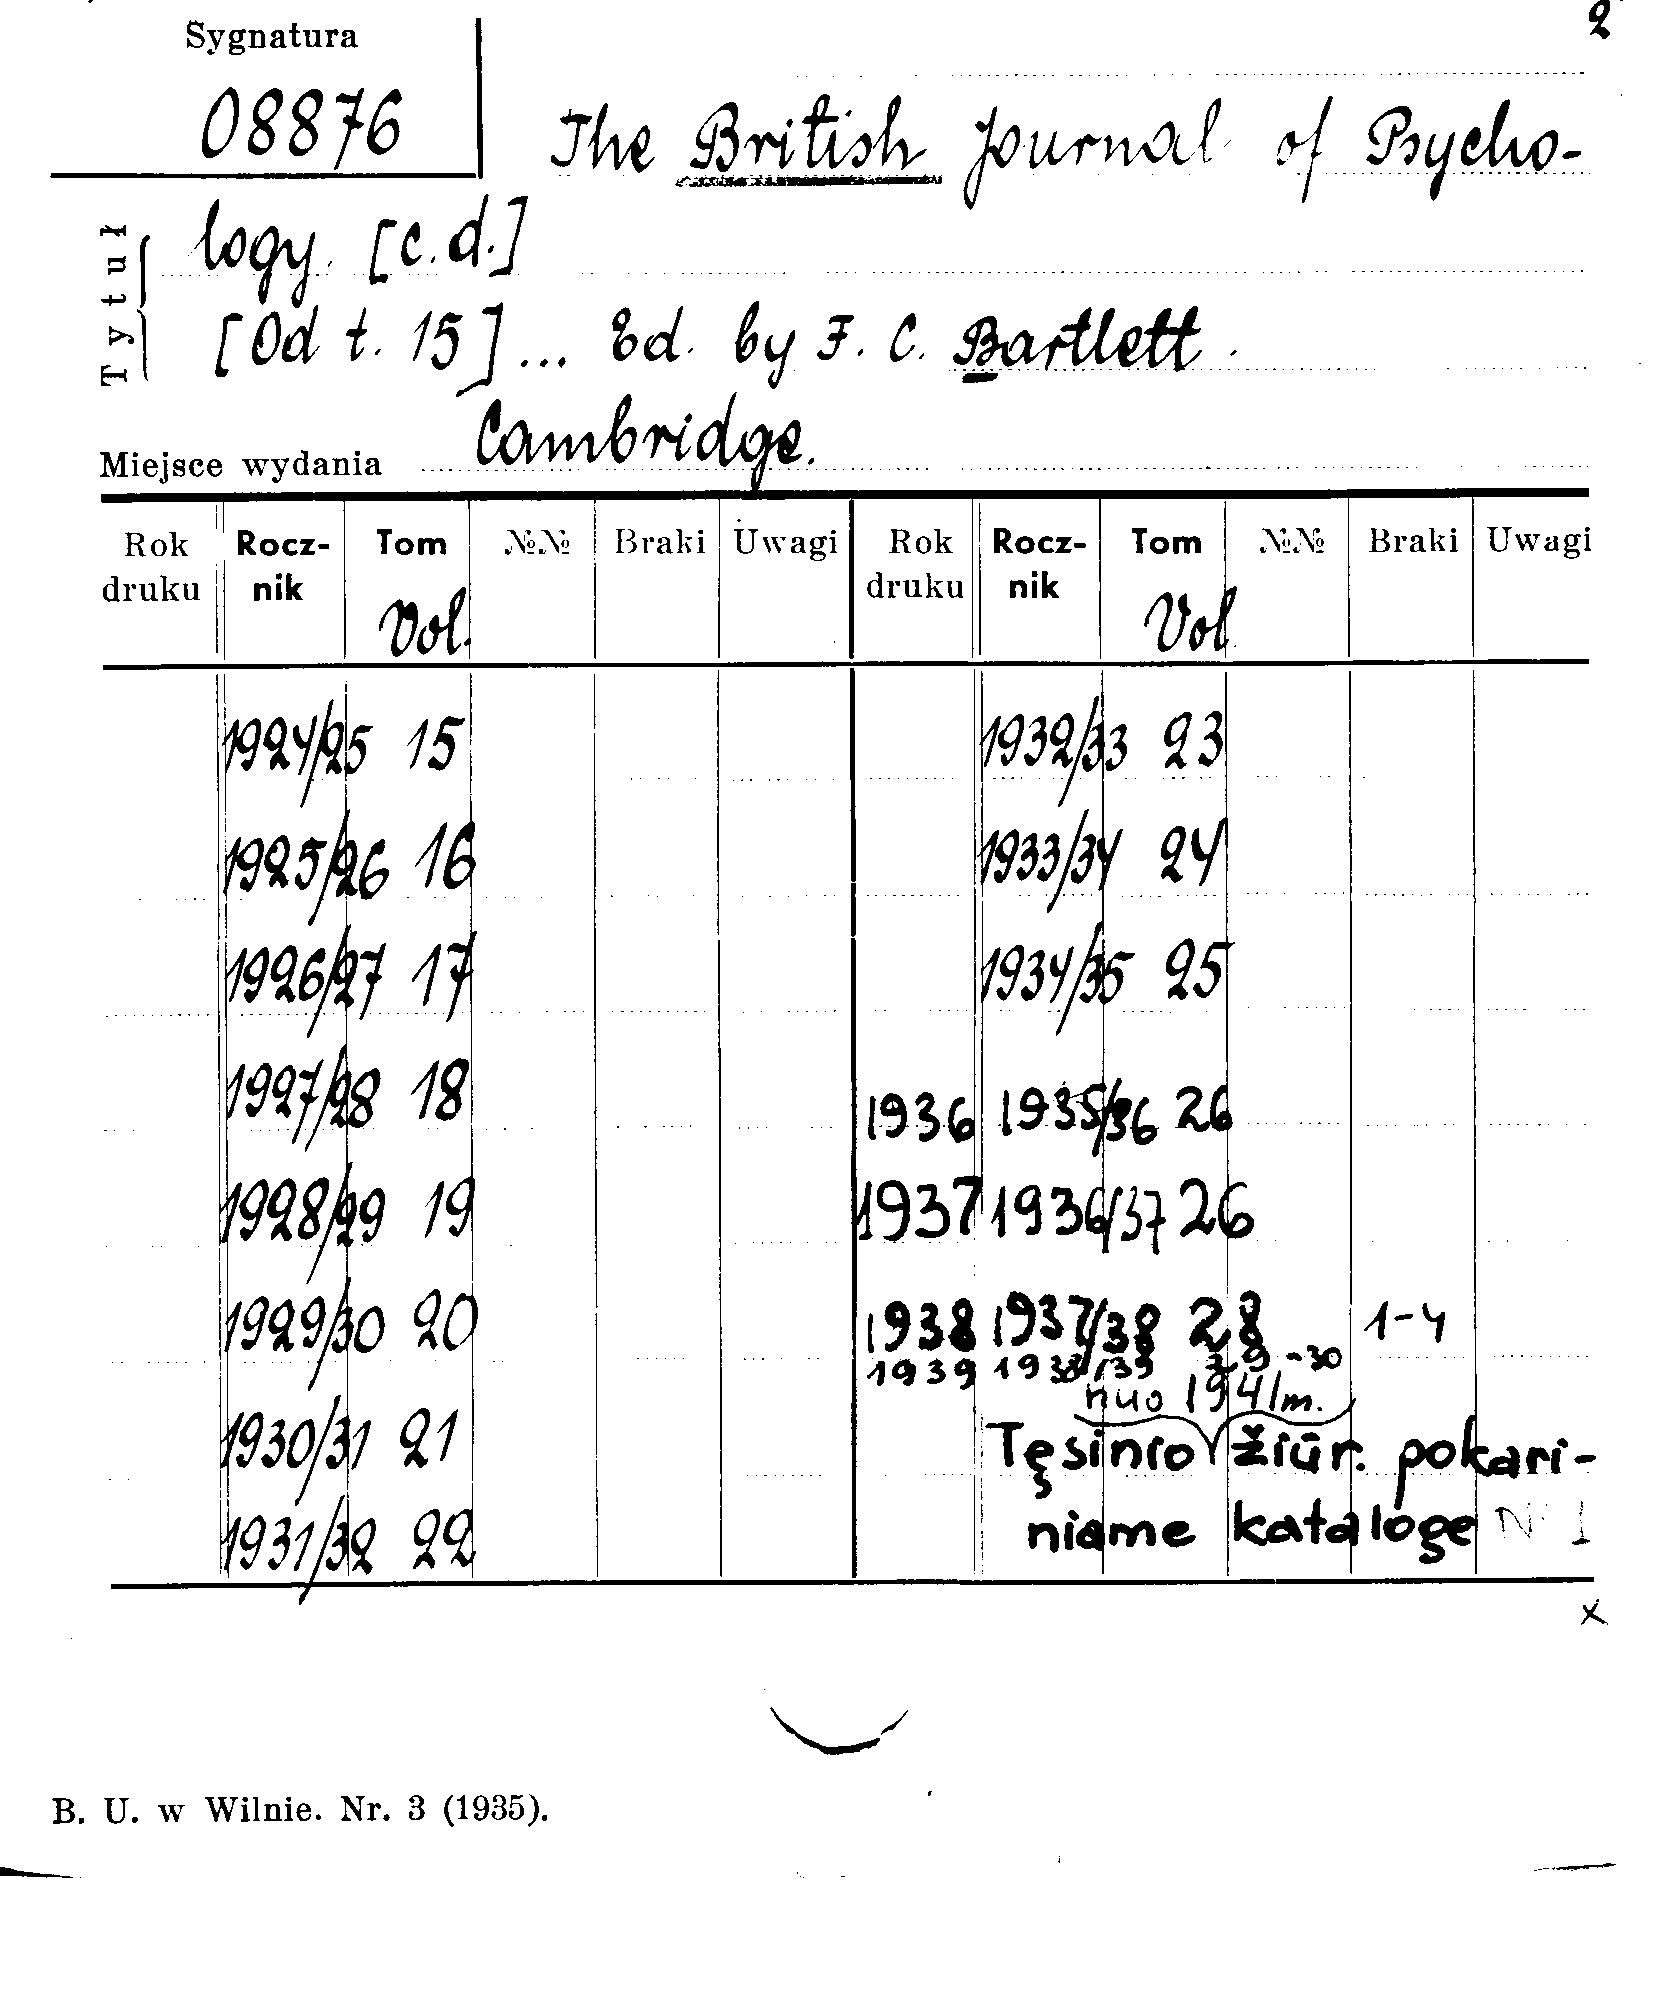 2
Sygnatura
08876
The British Journal of Psycho-
logy. [c.d.]
[Od t. 15]... Ed. by F. C. Bartlett.
Tytuł
Miejsce wydania Cambridge.
Rok druku Rocz-nik Tom Vol. №№ Braki Uwagi Rok druku Rocz-nik Tom Vol №№ Braki Uwagi
1924/25 15 1932/33 23
1925/26 16 1933/34 24
1926/27 17 1934/35 25
1927/28 18 1936 1935/36 26
1928/29 19 1937 1936/37 26
1929/30 20 1938 1937/38 28 1-4
1939 1938/39 29-30
nuo 1941m.
1930/31 21 Tęsinio žiūr. pokari-
1931/32 22 niame kataloge N 1
x
B. U. w Wilnie. Nr. 3 (1935).